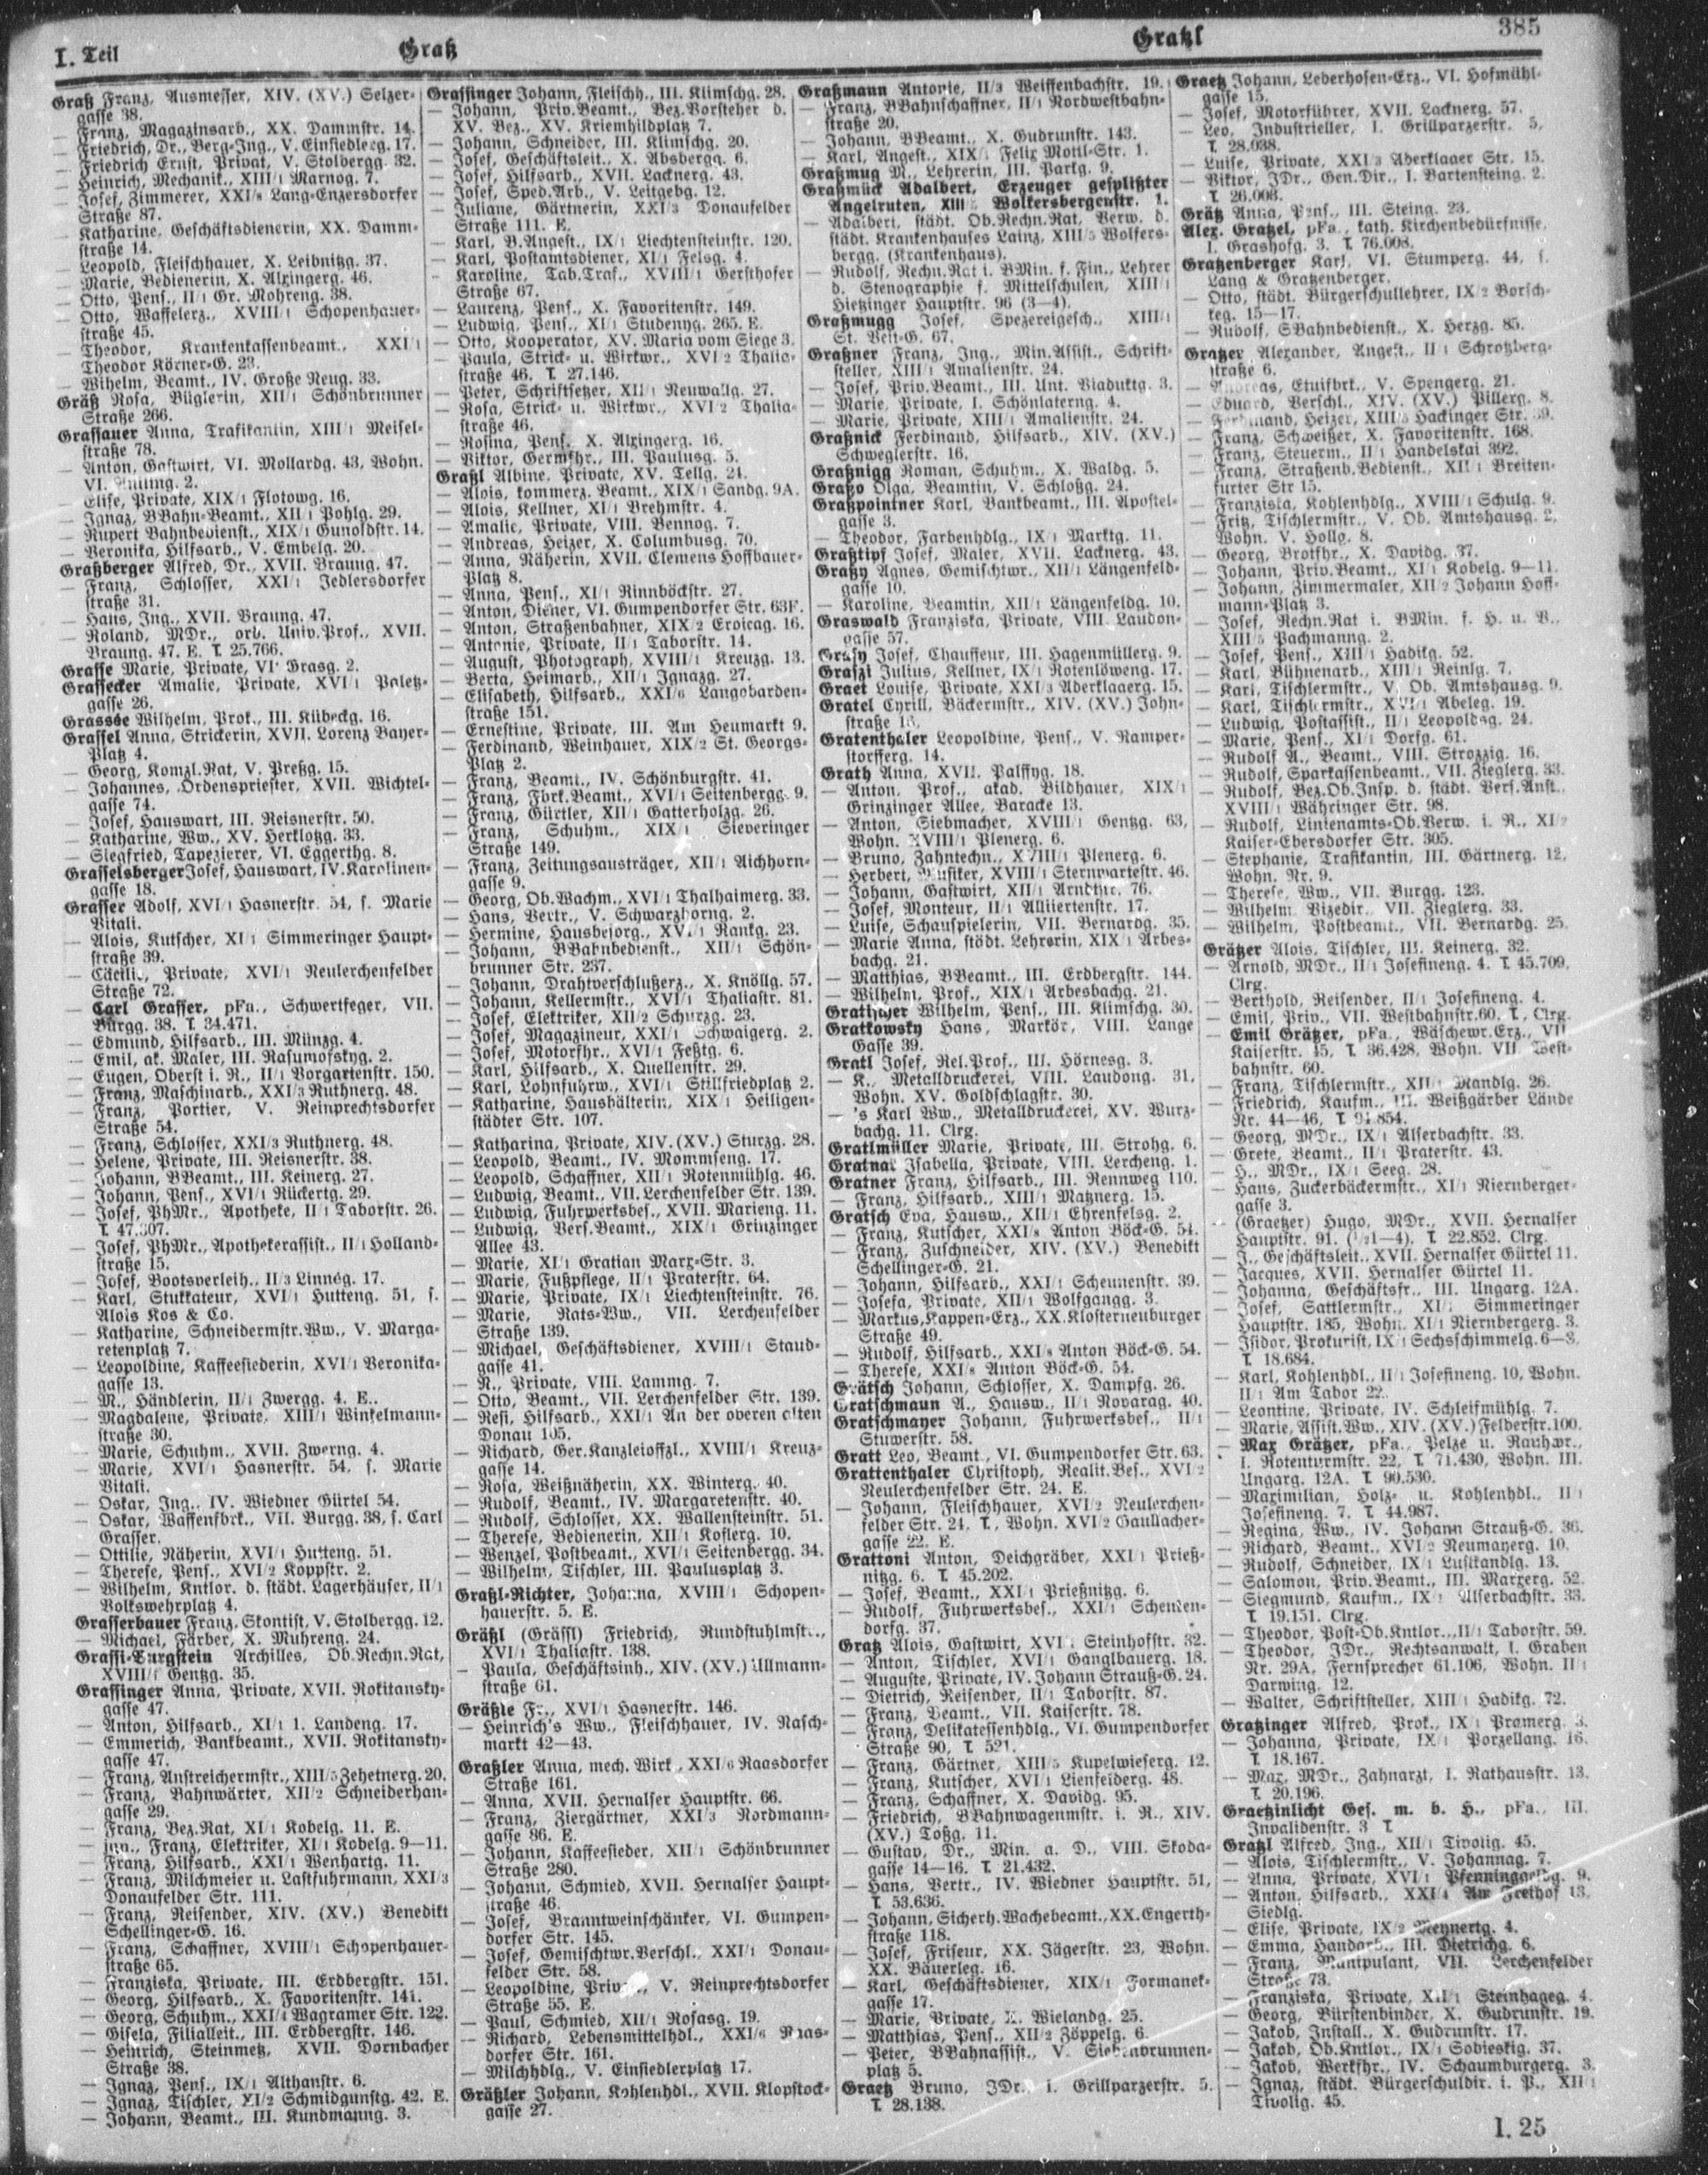 I. Teil
Graß
Gratzl
385
Graß Franz, Ausmesser, XIV. (XV.) Selzer-
gasse 38.
— Franz, Magazinsarb., XX. Dammstr. 14.
— Friedrich, Dr., Berg-Ing., V. Einsiedlerg. 17.
— Friedrich Ernst, Privat, V. Stolbergg. 32.
— Heinrich, Mechanik., XIII/1 Marnog. 7.
— Josef, Zimmerer, XXI/8 Lang-Enzersdorfer
Straße 87.
— Katharine, Geschäftsdienerin, XX. Damm-
straße 14.
— Leopold, Fleischhauer, X. Leibnitzg. 37.
— Marie, Bedienerin, X. Alxingerg. 46.
— Otto, Pens., II/1 Gr. Mohreng. 38.
— Otto, Waffelerz., XVIII/1 Schopenhauer-
straße 45.
— Theodor, Krankenkassenbeamt., XXI/1
Theodor Körner-G. 23.
— Wihelm, Beamt., IV. Große Neug. 33.
Gräß Rosa, Büglerin, XII/1 Schönbrunner
Straße 266.
Grassauer Anna, Trafikantin, XIII/1 Meisel-
straße 78.
— Anton, Gastwirt, VI. Mollardg. 43, Wohn.
VI. 2.
— Elise, Private, XIX/1 Flotowg. 16.
— Ignaz, BBahn-Beamt., XII/1 Pohlg. 29.
— Rupert Bahnbedienst., XIX/1 Gunoldstr. 14.
— Veronika, Hilfsarb., V. Embelg. 20.
Graßberger Alfred, Dr., XVII. Braung. 47.
— Franz, Schlosser, XXI/1 Jedlersdorfer
straße 31.
— Hans, Ing., XVII. Braung. 47.
— Roland, MDr., ord. Univ.Prof., XVII.
Braung. 47. E. T. 25.766.
Grasse Marie, Private, VI/ Grasg. 2.
Grassecker Amalie, Private, XVI/1 Paletz-
gasse 26.
Grassée Wilhelm, Prok., III. Kübeckg. 16.
Grassel Anna, Strickerin, XVII. Lorenz Bayer-
Platz 4.
— Georg, Komzl.Rat, V. Preßg. 15.
— Johannes, Ordenspriester, XVII. Wichtel-
gasse 74.
— Josef, Hauswart, III. Reisnerstr. 50.
— Katharine, Ww., XV. Herklotzg. 33.
— Siegfried, Tapezierer, VI. Eggerthg. 8.
Grasselsberger Josef, Hauswart, IV. Karolinen-
gasse 18.
Grasser Adolf, XVI/1 Hasnerstr. 54, s. Marie
Vitali.
— Alois, Kutscher, XI/1 Simmeringer Haupt-
straße 39.
— Cäcili., Private, XVI/1 Neulerchenfelder
Straße 72.
— Carl Grasser, pFa., Schwertfeger, VII.
Burgg. 38. T. 34.471.
— Edmund, Hilfsarb., III. Münzg. 4.
— Emil, ak. Maler, III. Rasumofskyg. 2.
— Eugen, Oberst i. R., II/1 Vorgartenstr. 150.
— Franz, Maschinarb., XXI/3 Ruthnerg. 48.
— Franz, Portier, V. Reinprechtsdorfer
Straße 54.
— Franz, Schlosser, XXI/3 Ruthnerg. 48.
— Helene, Private, III. Reisnerstr. 38.
— Johann, BBeamt., III. Keinerg. 27.
— Johann, Pens., XVI/1 Rückertg. 29.
— Josef, PhMr., Apotheke, II/1 Taborstr. 26.
T. 47.307.
— Josef, PhMr., Apothekerassist., II/1 Holland-
straße 15.
— Josef, Bootsverleih., II/3 Linnég. 17.
— Karl, Stukkateur, XVI/1 Hutteng. 51, s.
Alois Kos & Co.
— Katharine, Schneidermstr.Ww., V. Marga-
retenplatz 7.
— Leopoldine, Kaffeesiederin, XVI/1 Veronika-
gasse 13.
— M., Händlerin, II/1 Zwergg. 4. E..
— Magdalene, Private, XIII/1 Winkelmann-
straße 30.
— Marie, Schuhm., XVII. Zwerng. 4.
— Marie, XVI/1 Hasnerstr. 54, s. Marie
Vitali.
— Oskar, Ing., IV. Wiedner Gürtel 54.
— Oskar, Waffenfbrk., VII. Burgg. 38, s. Carl
Grasser.
— Ottilie, Näherin, XVI/1 Hutteng. 51.
— Therese, Pens., XVI/2 Koppstr. 2.
— Wilhelm, Kntlor. d. städt. Lagerhäuser, II/1
Volkswehrplatz 4.
Grasserbauer Franz, Skontist, V. Stolbergg. 12.
— Michael, Färber, X. Muhreng. 24.
Grassi-Burgstein Archilles, Ob.Rechn.Rat,
XVIII/1 Gentzg. 35.
Grassinger Anna, Private, XVII. Rokitansky-
gasse 47.
— Anton, Hilfsarb., XI/1 1. Landeng. 17.
— Emmerich, Bankbeamt., XVII. Rokitansky-
gasse 47.
— Franz, Anstreichermstr., XIII/5 Zehetnerg. 20.
— Franz, Bahnwärter, XII/2 Schneiderhan-
gasse 29.
— Franz, Bez.Rat, XI/1 Kobelg. 11. E.
— jun., Franz, Elektriker, XI/1 Kobelg. 9—11.
— Franz, Hilfsarb., XXI/1 Wenhartg. 11.
— Franz, Milchmeier u. Lastfuhrmann, XXI/3
Donaufelder Str. 111.
— Franz, Reisender, XIV. (XV.) Benedikt
Schellinger-G. 16.
— Franz, Schaffner, XVIII/1 Schopenhauer-
straße 65.
— Franziska, Private, III. Erdbergstr. 151.
— Georg, Hilfsarb., X. Favoritenstr. 141.
— Georg, Schuhm., XXI/1 Wagramer Str. 122.
— Gisela, Filialleit., III. Erdbergstr. 146.
— Heinrich, Steinmetz, XVII. Dornbacher
Straße 38.
— Ignaz, Pens., IX/1 Althanstr. 6.
— Ignaz, Tischler, XI/2 Schmidgunstg. 42. E.
— Johann, Beamt., III. Kundmanng. 3.
Grassinger Johann, Fleischh., III. Klimschg. 28.
— Johann, Priv.Beamt., Bez.Vorsteher d.
XV. Bez., XV. Kriemhildplatz 7.
— Johann, Schneider, III. Klimschg. 20.
— Josef, Geschäftsleit., X. Absbergg. 6.
— Josef, Hilfsarb., XVII. Lacknerg. 43.
— Josef, Sped.Arb., V. Leitgebg. 12.
— Juliane, Gärtnerin, XXI/3 Donaufelder
Straße 111. E.
— Karl, B.Angest., IX/1 Liechtensteinstr. 120.
— Karl, Postamtsdiener, XI/1 Felsg. 4.
— Karoline, Tab.Traf., XVIII/1 Gersthofer
Straße 67.
— Laurenz, Pens., X. Favoritenstr. 149.
— Ludwig, Pens., XI/1 Studenyg. 265. E.
— Otto, Kooperator, XV. Maria vom Siege 3.
— Paula, Strick- u. Wirkwr., XVI/2 Thalia-
straße 46. T. 27.146.
— Peter, Schriftsetzer, XII/1 Neuwallg. 27.
— Rosa, Strick- u. Wirkwr., XVI/2 Thalia-
straße 46.
— Rosina, Pens., X. Alxingerg. 16.
— Viktor, Germfhr., III. Paulusg. 5.
Graßl Albine, Private, XV. Tellg. 24.
— Alois, kommerz. Beamt., XIX/1 Sandg. 9A.
— Alois, Kellner, XI/1 Brehmstr. 4.
— Amalie, Private, VIII. Bennog. 7.
— Andreas, Heizer, X. Columbusg. 70.
— Anna, Näherin, XVII. Clemens Hoffbauer-
Platz 8.
— Anna, Pens., XI/1 Rinnböckstr. 27.
— Anton, Diener, VI. Gumpendorfer Str. 63F.
— Anton, Straßenbahner, XIX/2 Eroicag. 16.
— Antonie, Private, II/1 Taborstr. 14.
— August, Photograph, XVIII/1 Kreuzg. 13.
— Berta, Heimarb., XII/1 Ignazg. 27.
— Elisabeth, Hilfsarb., XXI/6 Langobarden-
straße 151.
— Ernestine, Private, III. Am Heumarkt 9.
— Ferdinand, Weinhauer, XIX/2 St. Georgs-
Platz 2.
— Franz, Beamt., IV. Schönburgstr. 41.
— Franz, Fbrk.Beamt., XVI/1 Seitenbergg. 9.
— Franz, Gürtler, XII/1 Gatterholzg. 26.
— Franz, Schuhm., XIX/1 Sieveringer
Straße 149.
— Franz, Zeitungsausträger, XII/1 Aichhorn-
gasse 9.
— Georg, Ob.Wachm., XVI/1 Thalhaimerg. 33.
— Hans, Vertr., V. Schwarzhorng. 2.
— Hermine, Hausbesorg., XVI/1 Rankg. 23.
— Johann, BBahnbedienst., XII/1 Schön-
brunner Str. 237.
— Johann, Drahtverschlußerz., X. Knöllg. 57.
— Johann, Kellermstr., XVI/1 Thaliastr. 81.
— Josef, Elektriker, XII/2 Schurzg. 23.
— Josef, Magazineur, XXI/1 Schwaigerg. 2.
— Josef, Motorfhr., XVI/1 Feßtg. 6.
— Karl, Hilfsarb., X. Quellenstr. 29.
— Karl, Lohnfuhrw., XVI/1 Stillfriedplatz 2.
— Katharine, Haushälterin, XIX/1 Heiligen-
städter Str. 107.
— Katharina, Private, XIV. (XV.) Sturzg. 28.
— Leopold, Beamt., IV. Mommseng. 17.
— Leopold, Schaffner, XII/1 Rotenmühlg. 46.
— Ludwig, Beamt., VII. Lerchenfelder Str. 139.
— Ludwig, Fuhrwerksbes., XVII. Marieng. 11.
— Ludwig, Vers.Beamt., XIX/1 Grinzinger
Allee 43.
— Marie, XI/1 Gratian Marx-Str. 3.
— Marie, Fußpflege, II/1 Praterstr. 64.
— Marie, Private, IX/1 Liechtensteinstr. 76.
— Marie, Rats-Ww., VII. Lerchenfelder
Straße 139.
— Michael, Geschäftsdiener, XVIII/1 Staud-
gasse 41.
— N., Private, VIII. Lammg. 7.
— Otto, Beamt., VII. Lerchenfelder Str. 139.
— Resi, Hilfsarb., XXI/1 An der oberen alten
Donau 105.
— Richard, Ger.Kanzleioffzl., XVIII/1 Kreuz-
gasse 14.
— Rosa, Weißnäherin, XX. Winterg. 40.
— Rudolf, Beamt., IV. Margaretenstr. 40.
— Rudolf, Schlosser, XX. Wallensteinstr. 51.
— Therese, Bedienerin, XII/1 Koflerg. 10.
— Wenzel, Postbeamt., XVI/1 Seitenbergg. 34.
— Wilhelm, Tischler, III. Paulusplatz 3.
Graßl-Richter, Johanna, XVIII/1 Schopen-
hauerstr. 5. E.
Gräßl (Grässl) Friedrich, Rundstuhlmst..,
XVI/1 Thaliastr. 138.
— Paula, Geschäftsinh., XIV. (XV.) Ullmann-
straße 61.
Gräßle Fr., XVI/1 Hasnerstr. 146.
— Heinrich's Ww., Fleischhauer, IV. Nasch-
markt 42—43.
Graßler Anna, mech. Wirk., XXI/6 Raasdorfer
Straße 161.
— Anna, XVII. Hernalser Hauptstr. 66.
— Franz, Ziergärtner, XXI/3 Nordmann-
gasse 86. E.
— Johann, Kaffeesieder, XII/1 Schönbrunner
Straße 280.
— Johann, Schmied, XVII. Hernalser Haupt-
straße 46.
— Josef, Branntweinschänker, VI. Gumpen-
dorfer Str. 145.
— Josef, Gemischtwr.Verschl., XXI/1 Donau-
felder Str. 58.
— Leopoldine, Priv., V. Reinprechtsdorfer
Straße 55. E.
— Paul, Schmied, XII/1 Rosasg. 19.
— Richard, Lebensmittelhdl., XXI/6 Raas-
dorfer Str. 161.
— Milchhdlg., V. Einsiedlerplatz 17.
Gräßler Johann, Kohlenhdl., XVII. Klopstock-
gasse 27.
Graßmann Antonie, II/3 Weissenbachstr. 19.
— Franz, BBahnschaffner, II/1 Nordwestbahn-
straße 20.
— Johann, BBeamt., X. Gudrunstr. 143.
— Karl, Angest., XIX/1 Felix Mottl-Str. 1.
Graßmug M., Lehrerin, III. Parkg. 9.
Graßmück Adalbert, Erzeuger gesplißter
Angelruten, XIII/5 Wolkersbergenstr. 1.
— Adalbert, städt. Ob.Rechn.Rat, Verw. d.
städt. Krankenhauses Lainz, XIII/5 Wolkers-
bergg. (Krankenhaus).
— Rudolf, Rechn.Rat i. BMin. f. Fin., Lehrer
d. Stenographie f. Mittelschulen, XIII/1
Hietzinger Hauptstr. 96 (3—4).
Graßmugg Josef, Spezereigesch., XIII/1
St. Veit-G. 67.
Graßner Franz, Ing., Min.Assist., Schrift-
steller, XIII/1 Amalienstr. 24.
— Josef, Priv.Beamt., III. Unt. Viaduktg. 3.
— Marie, Private, I. Schönlaterng. 4.
— Marie, Private, XIII/1 Amalienstr. 24.
Graßnick Ferdinand, Hilfsarb., XIV. (XV.)
Schweglerstr. 16.
Graßnigg Roman, Schuhm., X. Waldg. 5.
Graßo Olga, Beamtin, V. Schloßg. 24.
Graßpointner Karl, Bankbeamt., III. Apostel-
gasse 3.
— Theodor, Farbenhdlg., IX/1 Marktg. 11.
Graßtipf Josef, Maler, XVII. Lacknerg. 43.
Graßy Agnes, Gemischtwr., XII/1 Längenfeld-
gasse 10.
— Karoline, Beamtin, XII/1 Längenfeldg. 10.
Graswald Franziska, Private, VIII. Laudon-
gasse 57.
Grasy Josef, Chauffeur, III. Hagenmüllerg. 9.
Graszi Julius, Kellner, IX/1 Rotenlöweng. 17.
Graet Louise, Private, XXI/3 Aderklaaerg. 15.
Gratel Cyrill, Bäckermstr., XIV. (XV.) John-
straße
Gratenthaler Leopoldine, Pens., V. Ramper-
storfferg. 14.
Grath Anna, XVII. Palffyg. 18.
— Anton, Prof., akad. Bildhauer, XIX/1
Grinzinger Allee, Baracke 13.
— Anton, Siebmacher, XVIII/1 Gentzg. 63,
Wohn. XVIII/1 Plenerg. 6.
— Bruno, Zahntechn., XVIII/1 Plenerg. 6.
— Herbert, Musiker, XVIII/1 Sternwartestr. 46.
— Johann, Gastwirt, XII/1 Arndtstr. 76.
— Josef, Monteur, II/1 Alliiertenstr. 17.
— Luise, Schauspielerin, VII. Bernardg. 35.
— Marie Anna, städt. Lehrerin, XIX/1 Arbes-
bachg. 21.
— Matthias, BBeamt., III. Erdbergstr. 144.
— Wilhelm, Prof., XIX/1 Arbesbachg. 21.
Grathwer Wilhelm, Pens., III. Klimschg. 30.
Gratkowsky Hans, Markör, VIII. Lange
Gasse 39.
Gratl Josef, Rel.Prof., III. Hörnesg. 3.
— K., Metalldruckerei, VIII. Laudong. 31,
Wohn. XV. Goldschlagstr. 30.
— 's Karl Ww., Metalldruckerei, XV. Wurz-
bachg. 11. Clrg.
Gratlmüller Marie, Private, III. Strohg. 6.
Gratnar Isabella, Private, VIII. Lercheng. 1.
Gratner Franz, Hilfsarb., III. Rennweg 110.
— Franz, Hilfsarb., XIII/1 Matznerg. 15.
Gratsch Eva, Hausw., XII/1 Ehrenfelsg. 2.
— Franz, Kutscher, XXI/8 Anton Böck-G. 54.
— Franz, Zuschneider, XIV. (XV.) Benedikt
Schellinger-G. 21.
— Johann, Hilfsarb., XXI/1 Scheunenstr. 39.
— Josefa, Private, XII/1 Wolfgangg. 3.
— Markus, Kappen-Erz., XX. Klosterneuburger
Straße 49.
— Rudolf, Hilfsarb., XXI/8 Anton Böck-G. 54.
— Therese, XXI/8 Anton Böck-G. 54.
Grätsch Johann, Schlosser, X. Dampfg. 26.
Gratschmaun A., Hausw., II/1 Novarag. 40.
Gratschmayer Johann, Fuhrwerksbes., II/1
Stuwerstr. 58.
Gratt Leo, Beamt., VI. Gumpendorfer Str. 63.
Grattenthaler Christoph, Realit.Bes., XVI/2
Neulerchenfelder Str. 24. E.
— Johann, Fleischhauer, XVI/2 Neulerchen-
felder Str. 24, T., Wohn. XVI/2 Gaullacher-
gasse 22. E.
Grattoni Anton, Deichgräber, XXI/1 Prieß-
nitzg. 6. T. 45.202.
— Josef, Beamt., XXI/1 Prießnitzg. 6.
— Rudolf, Fuhrwerksbes., XXI/1 Schenken-
dorfg. 37.
Gratz Alois, Gastwirt, XVI/1 Steinhofstr. 32.
— Anton, Tischler, XVI/1 Ganglbauerg. 18.
— Auguste, Private, IV. Johann Strauß-G. 24.
— Dietrich, Reisender, II/1 Taborstr. 87.
— Franz, Beamt., VII. Kaiserstr. 78.
— Franz, Delikatessenhdlg., VI. Gumpendorfer
Straße 90, T. 521.
— Franz, Gärtner, XIII/5 Kupelwieserg. 12.
— Franz, Kutscher, XVI/1 Lienfelderg. 48.
— Franz, Schaffner, X. Davidg. 95.
— Friedrich, BBahnwagenmstr. i. R., XIV.
(XV.) Toßg. 11.
— Gustav, Dr., Min. a. D., VIII. Skoda-
gasse 14—16. T. 21.432.
— Hans, Vertr., IV. Wiedner Hauptstr. 51,
T. 53.636.
— Johann, Sicherh.Wachebeamt., XX. Engerth-
straße 118.
— Josef, Friseur, XX. Jägerstr. 23, Wohn.
XX. Bäuerleg. 16.
— Karl, Geschäftsdiener, XIX/1 Formanek-
gasse 17.
— Marie, Private, X. Wielandg. 25.
— Matthias, Pens., XII/2 Zöppelg. 6.
— Peter, BBahnassist., V. Siebenbrunnen-
platz 5.
Graetz Bruno, JDr., I. Grillparzerstr. 5.
T. 28.138.
Graetz Johann, Lederhosen-Erz., VI. Hofmühl-
gasse 15.
— Josef, Motorführer, XVII. Lacknerg. 57.
— Leo, Industrieller, I. Grillparzerstr. 5,
T. 28.038.
— Luise, Private, XXI/3 Aderklaaer Str. 15.
— Viktor, JDr., Gen.Dir., I. Bartensteing. 2.
T. 26.008.
Grätz Anna, Pens., III. Steing. 23.
Alex. Gratzel, pFa., kath. Kirchenbedürfnisse,
I. Grashofg. 3. T. 76.008.
Gratzenberger Karl, VI. Stumperg. 44, s.
Lang & Gratzenberger.
— Otto, städt. Bürgerschullehrer, IX/2 Borsch-
keg. 15—17.
— Rudolf, SBahnbedienst., X. Herzg. 85.
Gratzer Alexander, Angest., II/1 Schrotzberg-
straße 6.
— Andreas, Etuisbrk., V. Spengerg. 21.
— Eduard, Verschl., XIV. (XV.) Pillerg. 8.
— Ferdinand, Heizer, XIII/5 Hackinger Str. 39.
— Franz, Schweißer, X. Favoritenstr. 168.
— Franz, Steuerm., II/1 Handelskai 392.
— Franz, Straßenb.Bedienst., XII/1 Breiten-
furter Str 15.
— Franziska, Kohlenhdlg., XVIII/1 Schulg. 9.
— Fritz, Tischlermstr., V. Ob. Amtshausg. 2,
Wohn. V. Hollg. 8.
— Georg, Brotfhr., X. Davidg. 37.
— Johann, Priv.Beamt., XI/1 Kobelg. 9—11.
— Johann, Zimmermaler, XII/2 Johann Hoff-
mann-Platz 3.
— Josef, Rechn.Rat i. BMin. f. H. u. V.,
XIII/5 Pachmanng. 2.
— Josef, Pens., XIII/1 Hadikg. 52.
— Karl, Bühnenarb., XIII/1 Reinlg. 7.
— Karl, Tischlermstr., V. Ob. Amtshausg. 9.
— Karl, Tischlermstr., XVI/1 Abeleg. 19.
— Ludwig, Postassist., II/1 Leopoldsg. 24.
— Marie, Pens., XI/1 Dorfg. 61.
— Rudolf A., Beamt., VIII. Strozzig. 16.
— Rudolf, Sparkassenbeamt., VII. Zieglerg. 33.
— Rudolf, Bez.Ob.Insp. d. städt. Vers.Anst.,
XVIII/1 Währinger Str. 98.
— Rudolf, Linienamts-Ob.Verw. i. R., XI/2
Kaiser-Ebersdorfer Str. 305.
— Stephanie, Trafikantin, III. Gärtnerg. 12,
Wohn. Nr. 9.
— Therese, Ww., VII. Burgg. 123.
— Wilhelm Vizedir., VII. Zieglerg. 33.
— Wilhelm, Postbeamt., VII. Bernardg. 25.
Grätzer Alois, Tischler, III. Keinerg. 32.
— Arnold, MDr., II/1 Josefineng. 4. T. 45.709,
Clrg.
— Berthold, Reisender, II/1 Josefineng. 4.
— Emil, Priv., VII. Westbahnstr. 60. T., Clrg.
— Emil Grätzer, pFa., Wäschewr.Erz., VII.
Kaiserstr. 15, T. 36.428, Wohn. VII. West-
bahnstr. 60.
— Franz, Tischlermstr., XII/1 Mandlg. 26.
— Friedrich, Kaufm., III. Weißgärber Lände
Nr. 44—46, T. 91.854.
— Georg, MDr., IX/1 Alserbachstr. 33.
— Grete, Beamt., II/1 Praterstr. 43.
— H., MDr., IX/1 Seeg. 28.
— Hans, Zuckerbäckermstr., XI/1 Niernberger-
gasse 3.
— (Graetzer) Hugo, MDr., XVII. Hernalser
Hauptstr. 91. (1/21—4). T. 22.852. Clrg.
— J., Geschäftsleit., XVII. Hernalser Gürtel 11.
— Jacques, XVII. Hernalser Gürtel 11.
— Johanna, Geschäftsfr., III. Ungarg. 12A.
— Josef, Sattlermstr., XI/1 Simmeringer
Hauptstr. 185, Wohn. XI/1 Niernbergerg. 3.
— Isidor, Prokurist, IX/1 Sechsschimmelg. 6—8.
T. 18.684.
— Karl, Kohlenhdl., II/1 Josefineng. 10, Wohn.
II/1 Am Tabor 22.
— Leontine, Private, IV. Schleifmühlg. 7.
— Marie, Assist.Ww., XIV. (XV.) Felderstr. 100.
— Max Grätzer, pFa., Pelze u. Rauhwr.,
I. Rotenturmstr. 22, T. 71.430, Wohn. III.
Ungarg. 12A. T. 90.530.
— Maximilian, Holz- u. Kohlenhdl., II/1
Josefineng. 7. T. 44.987.
— Regina, Ww., IV. Johann Strauß-G. 36.
— Richard, Beamt., XVI/2 Neumayerg. 10.
— Rudolf, Schneider, IX/1 Lustkandlg. 13.
— Salomon, Priv.Beamt., III. Marxerg. 52.
— Siegmund, Kaufm., IX/1 Alserbachstr. 33.
T. 19.151. Clrg.
— Theodor, Post-Ob.Kntlor., II/1 Taborstr. 59.
— Theodor, JDr., Rechtsanwalt, I. Graben
Nr. 29A, Fernsprecher 61.106, Wohn. II/1
Darwing. 12.
— Walter, Schriftsteller, XIII/1 Hadikg. 72.
Gratzinger Alfred, Prok., IX/1 Pramerg. 3.
— Johanna, Private, IX/1 Porzellang. 16.
T. 18.167.
— Max, MDr., Zahnarzt, I. Rathausstr. 13.
T. 20.196.
Graetzinlicht Ges. m. b. H., pFa., III.
Invalidenstr. 3 T.
Gratzl Alfred, Ing., XII/1 Tivolig. 45.
— Alois, Tischlermstr., V. Johannag. 7.
— Anna, Private, XVI/1 Pfenninggeldg. 9.
— Anton, Hilfsarb., XXI/4 Am Freihof 13,
Siedlg.
— Elise, Private, IX/2 Meynertg. 4.
— Emma, Handarb., III. Dietrichg. 6.
— Franz, Manipulant, VII. Lerchenfelder
Straße 73.
— Franziska, Private, XII/1 Steinhageg. 4.
— Georg, Bürstenbinder, X. Gudrunstr. 19.
— Jakob, Install., X. Gudrunstr. 17.
— Jakob, Ob.Kntlor., IX/1 Sobieskig. 37.
— Jakob, Werkfhr., IV. Schaumburgerg. 3.
— Ignaz, städt. Bürgerschuldir. i. P., XII/1
Tivolig. 45.
I. 25